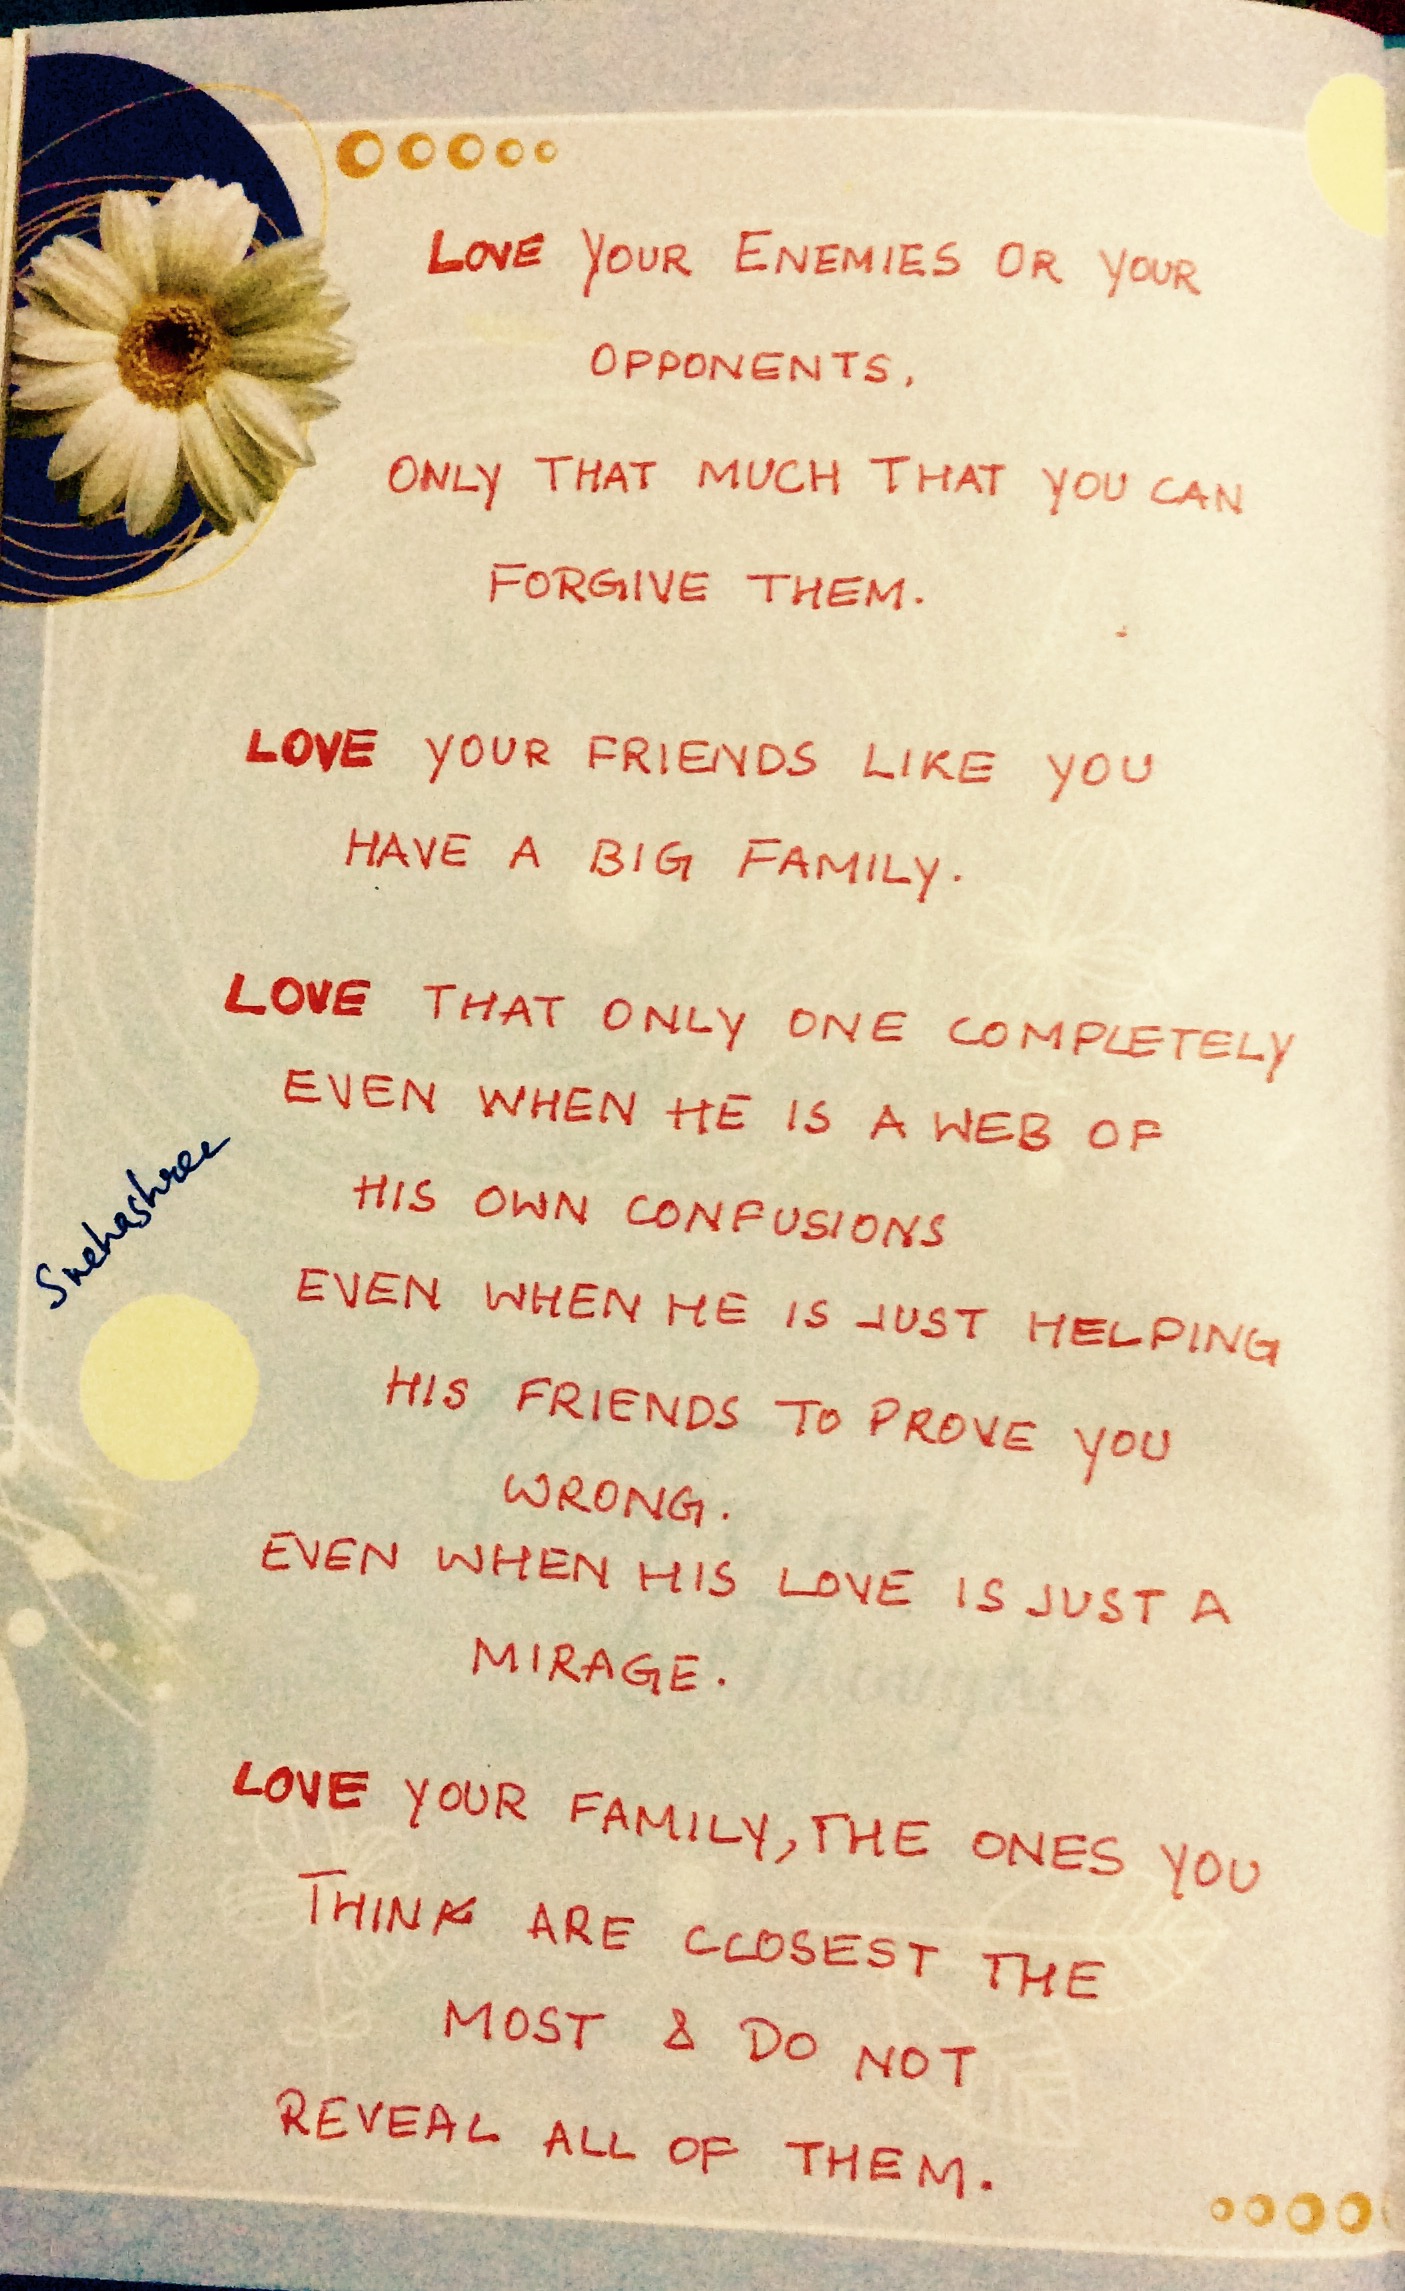 LOVE YOUR ENEMIES OR YOUR
OPPONENTS,
ONLY THAT MUCH THAT YOU CAN
FORGIVE THEM.
LOVE YOUR FRIENDS LIKE YOU
HAVE A BIG FAMILY.
LOVE THAT ONLY ONE COMPLETELY
EVEN WHEN HE IS A WEB OF
HIS OWN CONFUSIONS
EVEN WHEN HE IS JUST HELPING
HIS FRIENDS TO PROVE YOU
WRONG.
EVEN WHEN HIS LOVE IS JUST A
MIRAGE.
LOVE YOUR FAMILY, THE ONES YOU
THINK ARE CLOSEST THE
MOST & DO NOT
REVEAL ALL OF THEM.
Snehashree